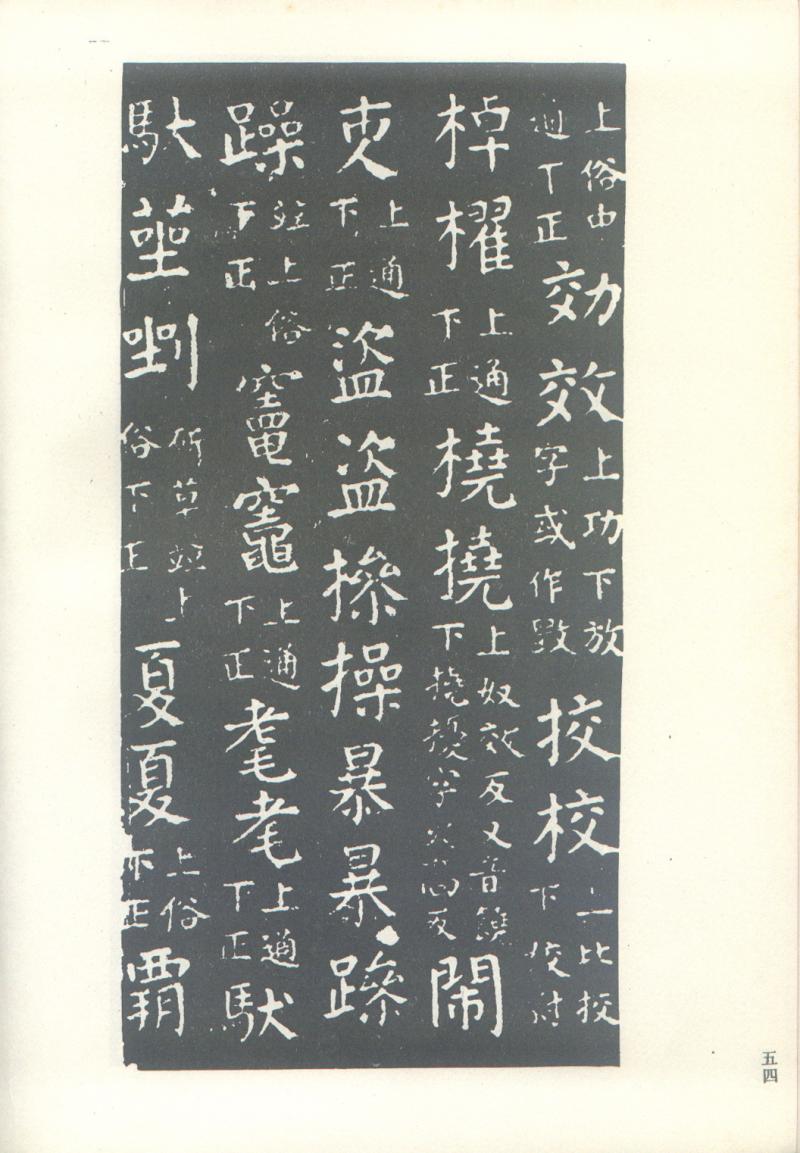 上俗中通下正効效上功下放字或作挍校上比挍下校尉
棹櫂上通下正橈撓上奴效反又音饒下撓擾字火高反閙
上通下正盗盜摻操暴暴
躁並上俗下正竈上通下正耄耄上通下正馱
馱莝剉斫草並上俗下正夏夏上俗下正覇
五四